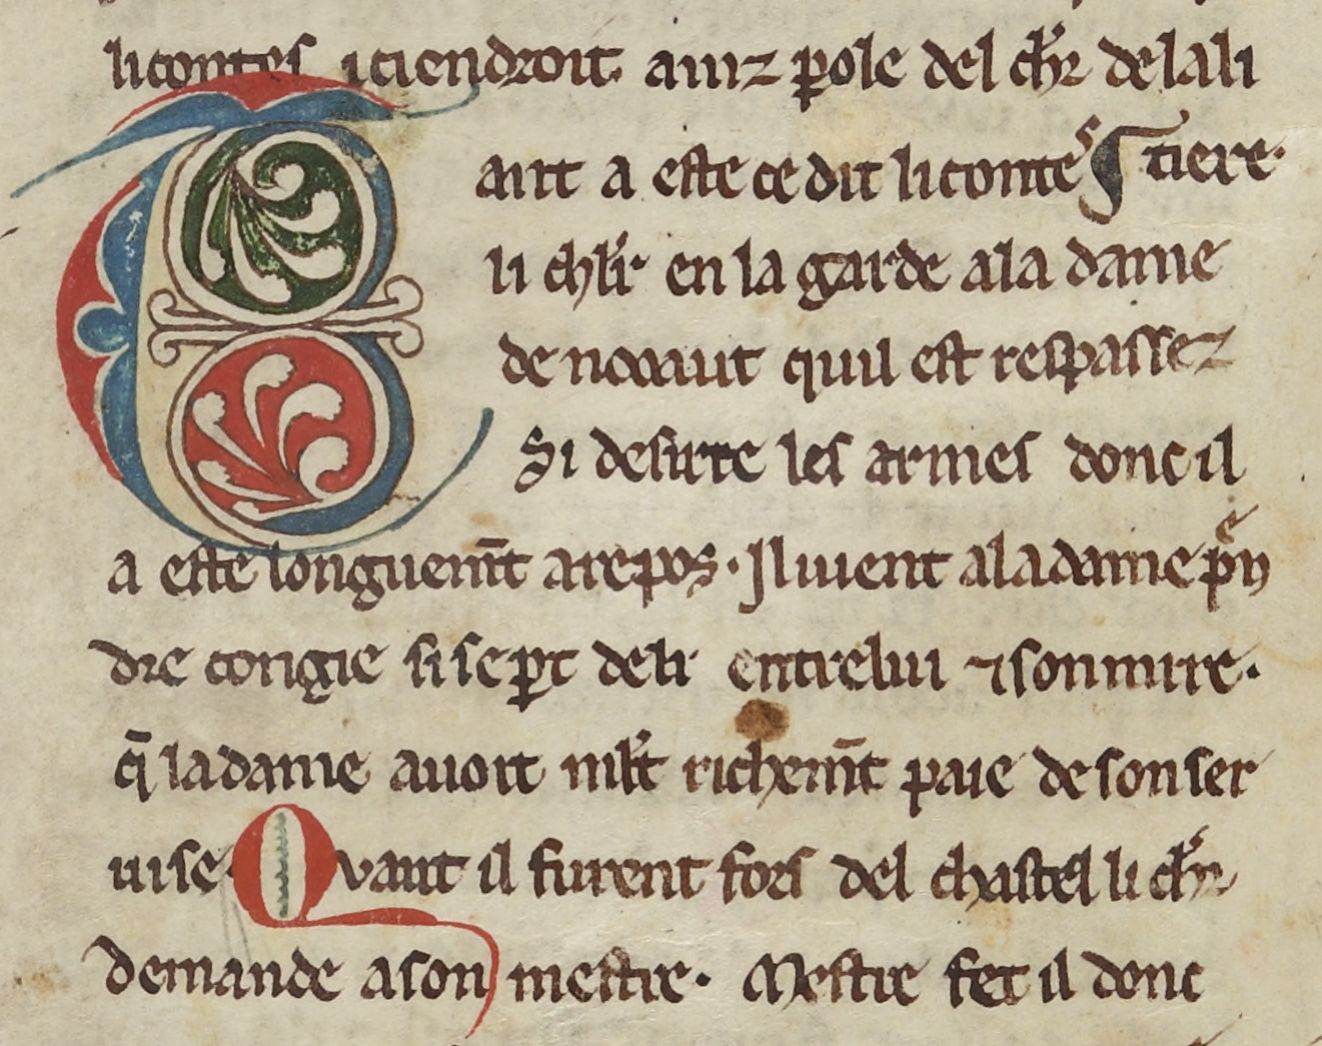 li contes i tiendroit. ainz ꝑole del chr̄ de la li
Tant a este ce dit li contes ⸿ tiere.
li chl̄r en la garde a la dame
de nouaut quil est respassez
Si desirre les armes donc il
a este longuem̄t a repos. Il uient a la dame p̄n
dre congie si se ꝑt de li entre lui ⁊ son mire.
q̄ la dame auoit ml̄t richem̄t paie de son ser
uise. Quant il furent fors del chastel li chr̄
demande a son mestre. Mestre fet il donc